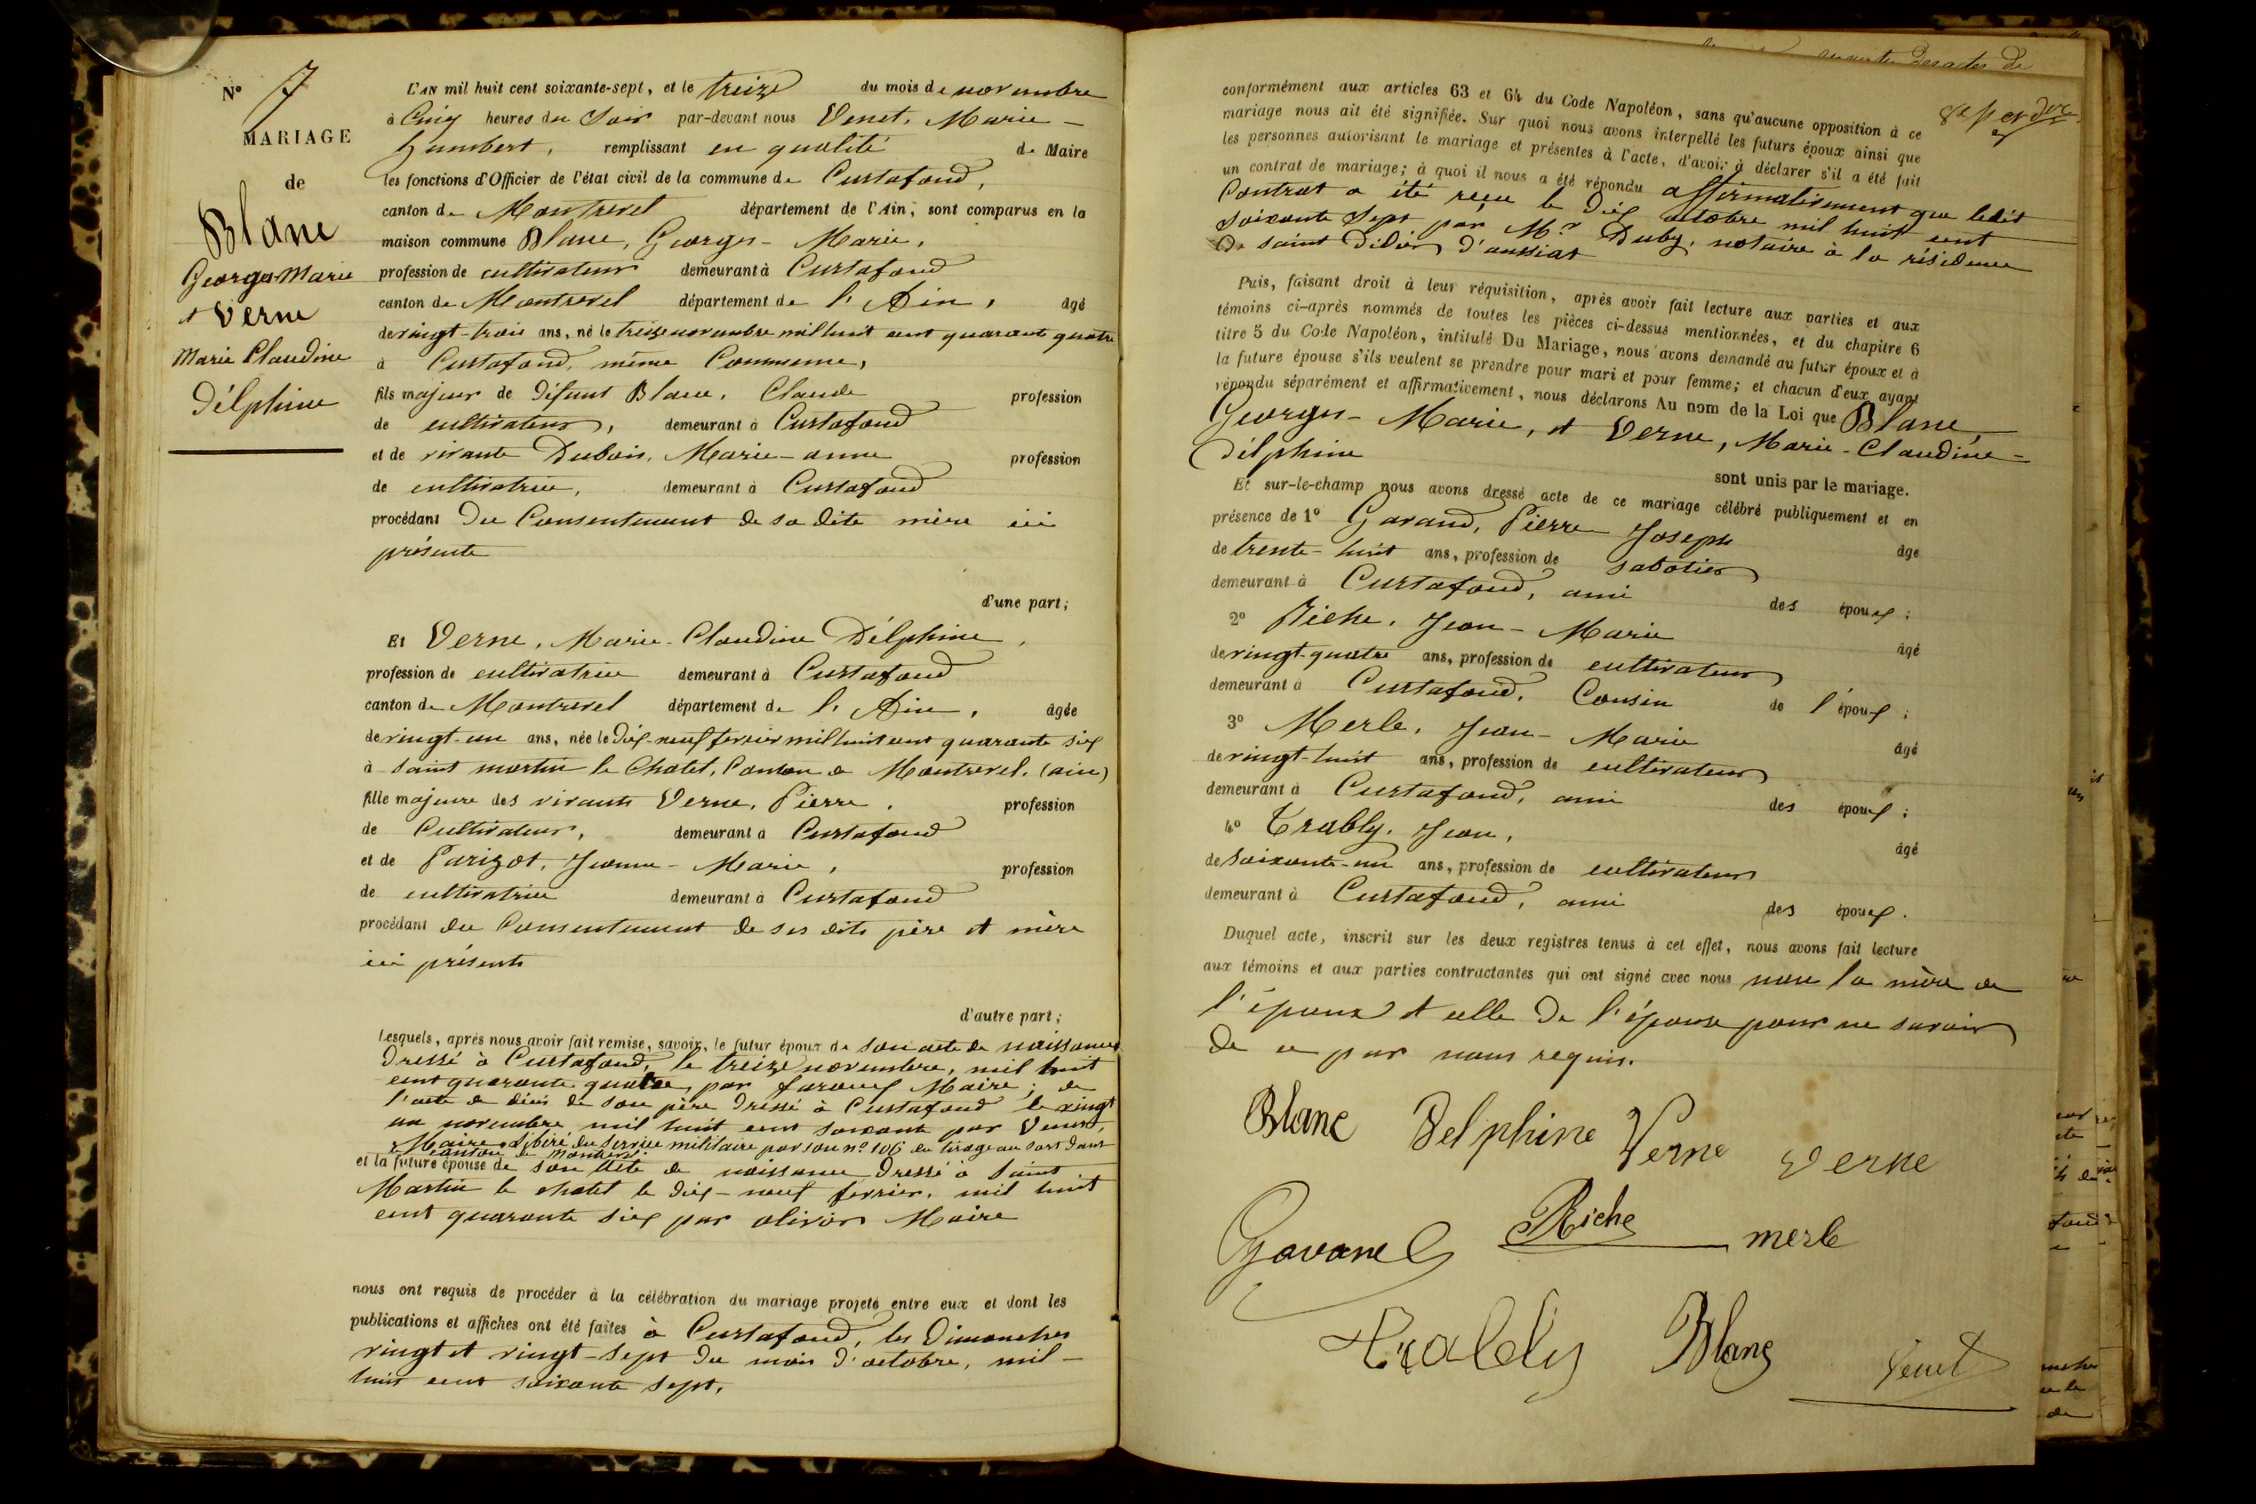 N° 7
MARIAGE
de
Blanc
Georges-Marie
et Verne
Marie Claudine
Délphine
L'AN mil huit cent soixante-sept, et le treize du mois de novembre
à Cinq heures du Soir par-devant nous Venet, Marie-
humbert, remplissant en qualité de Maire
les fonctions d'Officier de l'état civil de la commune de Curtafond,
canton de Montrevel département de l'Ain, sont comparus en la
maison commune Blanc, Georges-Marie,
profession de cultivateur demeurant à Curtafond
canton de Montrevel département de l'Ain, âgé
de vingt-trois ans, né le treize novembre mil huit cent quarante quatre
à Curtafond, même Commune,
fils majeur de défunt Blanc, Claude profession
de cultivateur, demeurant à Curtafond
et de vivante Dubois, Marie-anne profession
de cultivatrice, demeurant à Curtafond
procédant du Consentement de sa dite mère ici
présente
d'une part;
Et Verne, Marie-Claudine Délphine,
profession de cultivatrice demeurant à Curtafond
canton de Montrevel département de l'Ain, âgée
de vingt-un ans, née le dix-neuf fevrier mil huit cent quarante six
à saint martin le Chatel, Canton de Montrevel. (ain)
fille majeure des vivants Verne, Pierre, profession
de Cultivateur, demeurant à Curtafond
et de Parizot, Jeanne-Marie, profession
de cultivatrice demeurant à Curtafond
procédant du Consentement de ses dits père et mère
ici présents
d'autre part;
Lesquels, après nous avoir fait remise, savoir, le futur époux de son acte de naissance
dressé à Curtafond, le treize novembre, mil huit
cent quarante quatre, par Maire; de
l'acte de décès de son père dressé à Curtafond le vingt
un novembre mil huit cent soixante par Venet,
Maire. Libéré du service militaire par son n° 106 du tirage au sort dans
le canton de Montrevel.
et la future épouse de son acte de naissance dressé à Saint
Martin le chatel le dix-neuf fevrier, mil huit
cent quarante six par olivier Maire
nous ont requis de procéder à la célébration du mariage projeté entre eux et dont les
publications et affiches ont été faites à Curtafond, les Dimanches
vingt et vingt-sept du mois d'octobre, mil-
huit cent soixante sept.
conformément aux articles 63 et 64 du Code Napoléon, sans qu'aucune opposition à ce
mariage nous ait été signifiée. Sur quoi nous avons interpellé les futurs époux ainsi que
les personnes autorisant le mariage et présentes à l'acte, d'avoir à déclarer s'il a été fait
un contrat de mariage; à quoi il nous a été répondu affirmativement que ledit
Contrat a été reçu le dix octobre mil huit cent
soixante sept par Me Duby, notaire à la résidence
de saint didier d'aussiat
Puis, faisant droit à leur réquisition, après avoir fait lecture aux parties et aux
témoins ci-après nommés de toutes les pièces ci-dessus mentionnées, et du chapitre 6
titre 5 du Code Napoléon, intitulé Du Mariage, nous avons demandé au futur époux et à
la future épouse s'ils veulent se prendre pour mari et pour femme; et chacun d'eux ayant
répondu séparément et affirmativement, nous déclarons Au nom de la Loi que Blanc,
Georges-Marie, et Verne, Marie-Claudine-
Délphine
sont unis par le mariage.
Et sur-le-champ nous avons dressé acte de ce mariage célébré publiquement et en
présence de 1° Gavand, Pierre Joseph âgé
de trente-huit ans, profession de sabotier
demeurant à Curtafond, ami des époux;
2° Riche, Jean-Marie âgé
de vingt-quatre ans, profession de cultivateur
demeurant à Curtafond, Cousin de l'époux;
3° Merle, Jean-Marie âgé
de vingt-huit ans, profession de cultivateur
demeurant à Curtafond, ami des époux;
4° Trably, Jean, âgé
de soixante-un ans, profession de cultivateur
demeurant à Curtafond, ami des époux.
Duquel acte, inscrit sur les deux registres tenus à cet effet, nous avons fait lecture
aux témoins et aux parties contractantes qui ont signé avec nous non la mère de
l'époux et celle de l'épouse pour ne savoir
de ce par nous requis.
Blanc Delphine Verne Verne
Gavand Riche merle
Trably Blanc Venet